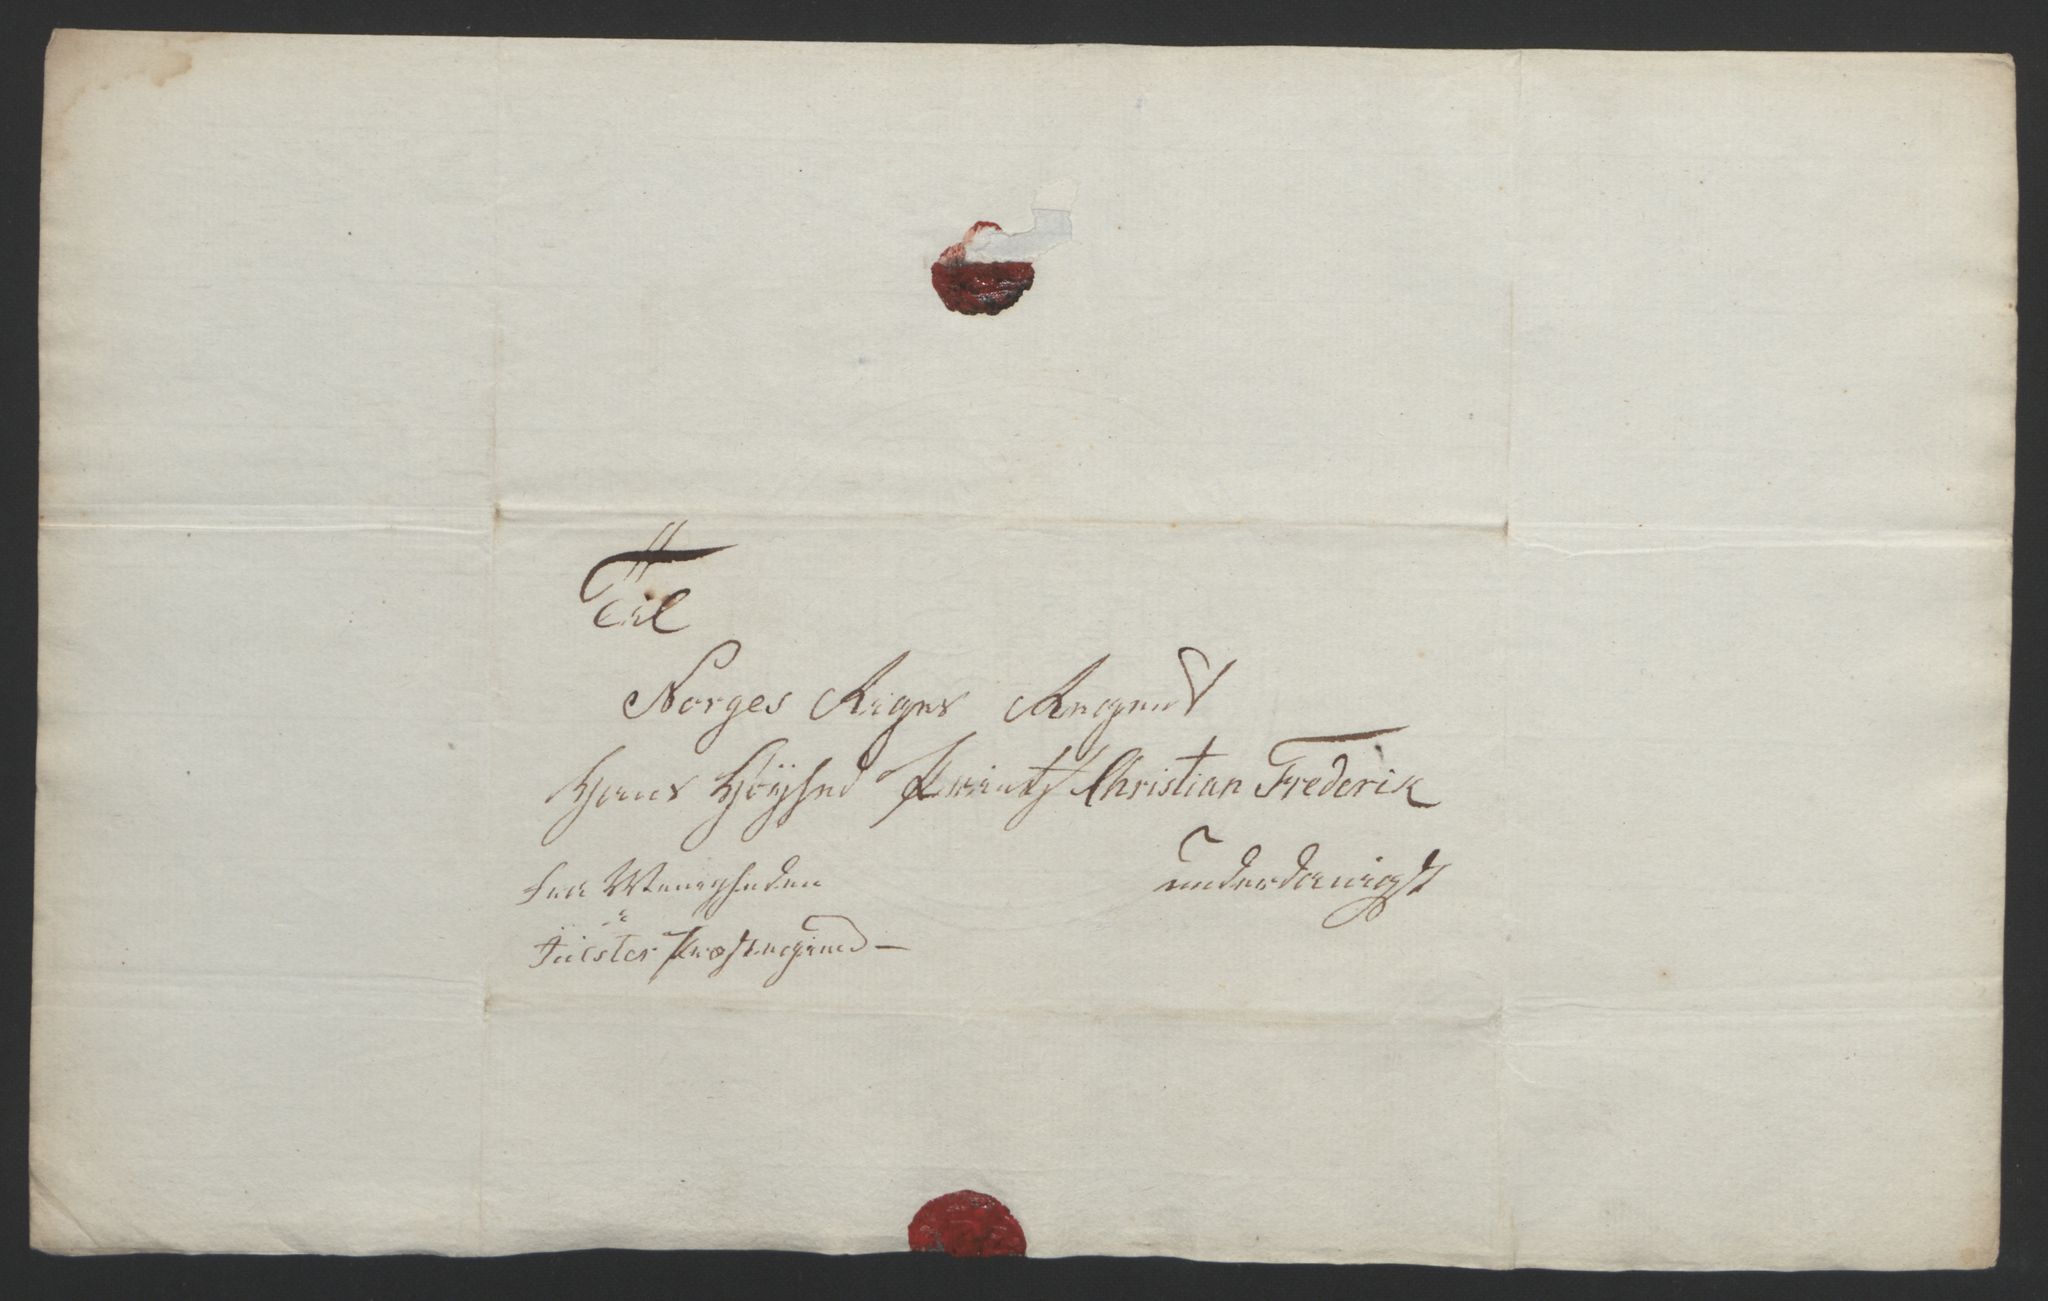 Til
Norges Riges Regent
Hans Höÿhed Printz Christian Frederik
underdanigst
fra Menigheden
i
Jülster Præstegield —